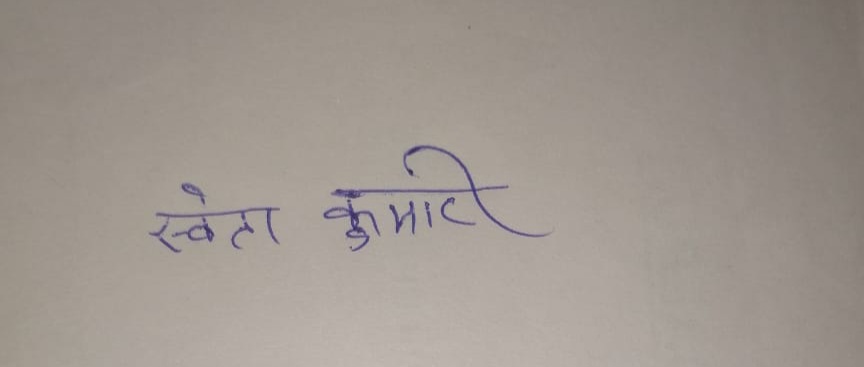 स्वेता कुमारी